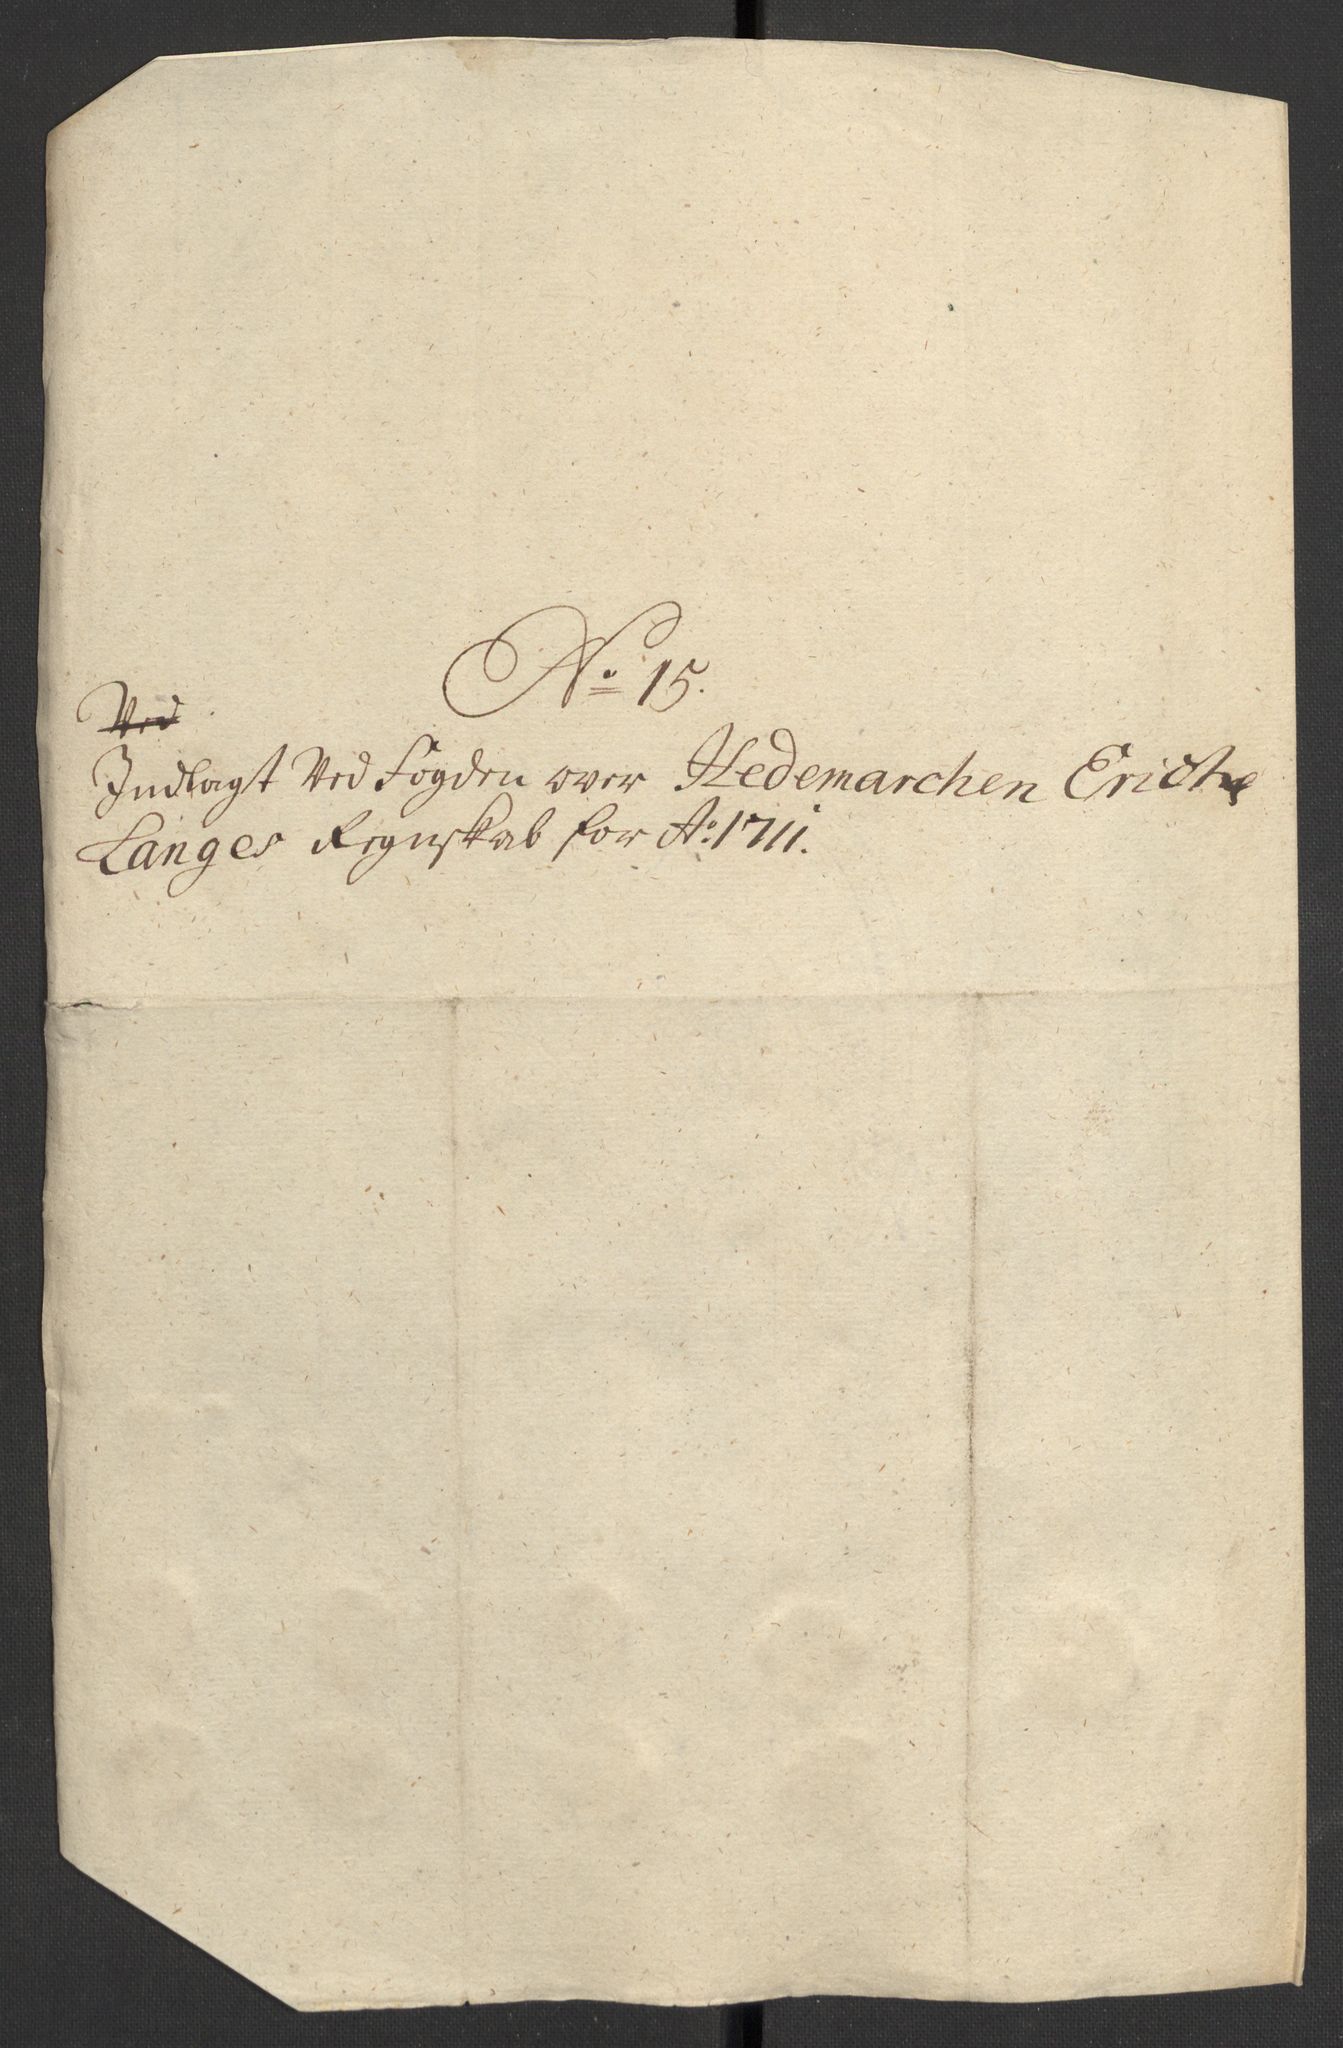 No 15.
Ved
Indlagt Ved Fogden over Hedemarchen Erich
Langes Regnskab for Ao: 1711.